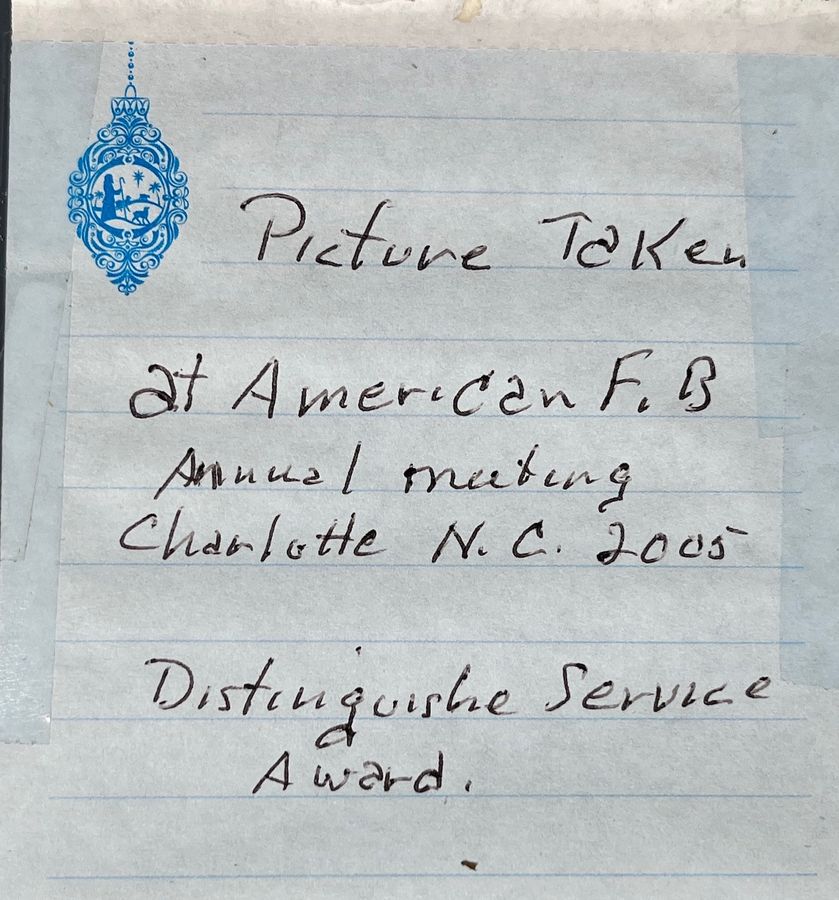 Picture Taken
at American F. B
Annual meeting
Charlotte N. C. 2005
Distinguishe Service
Award.